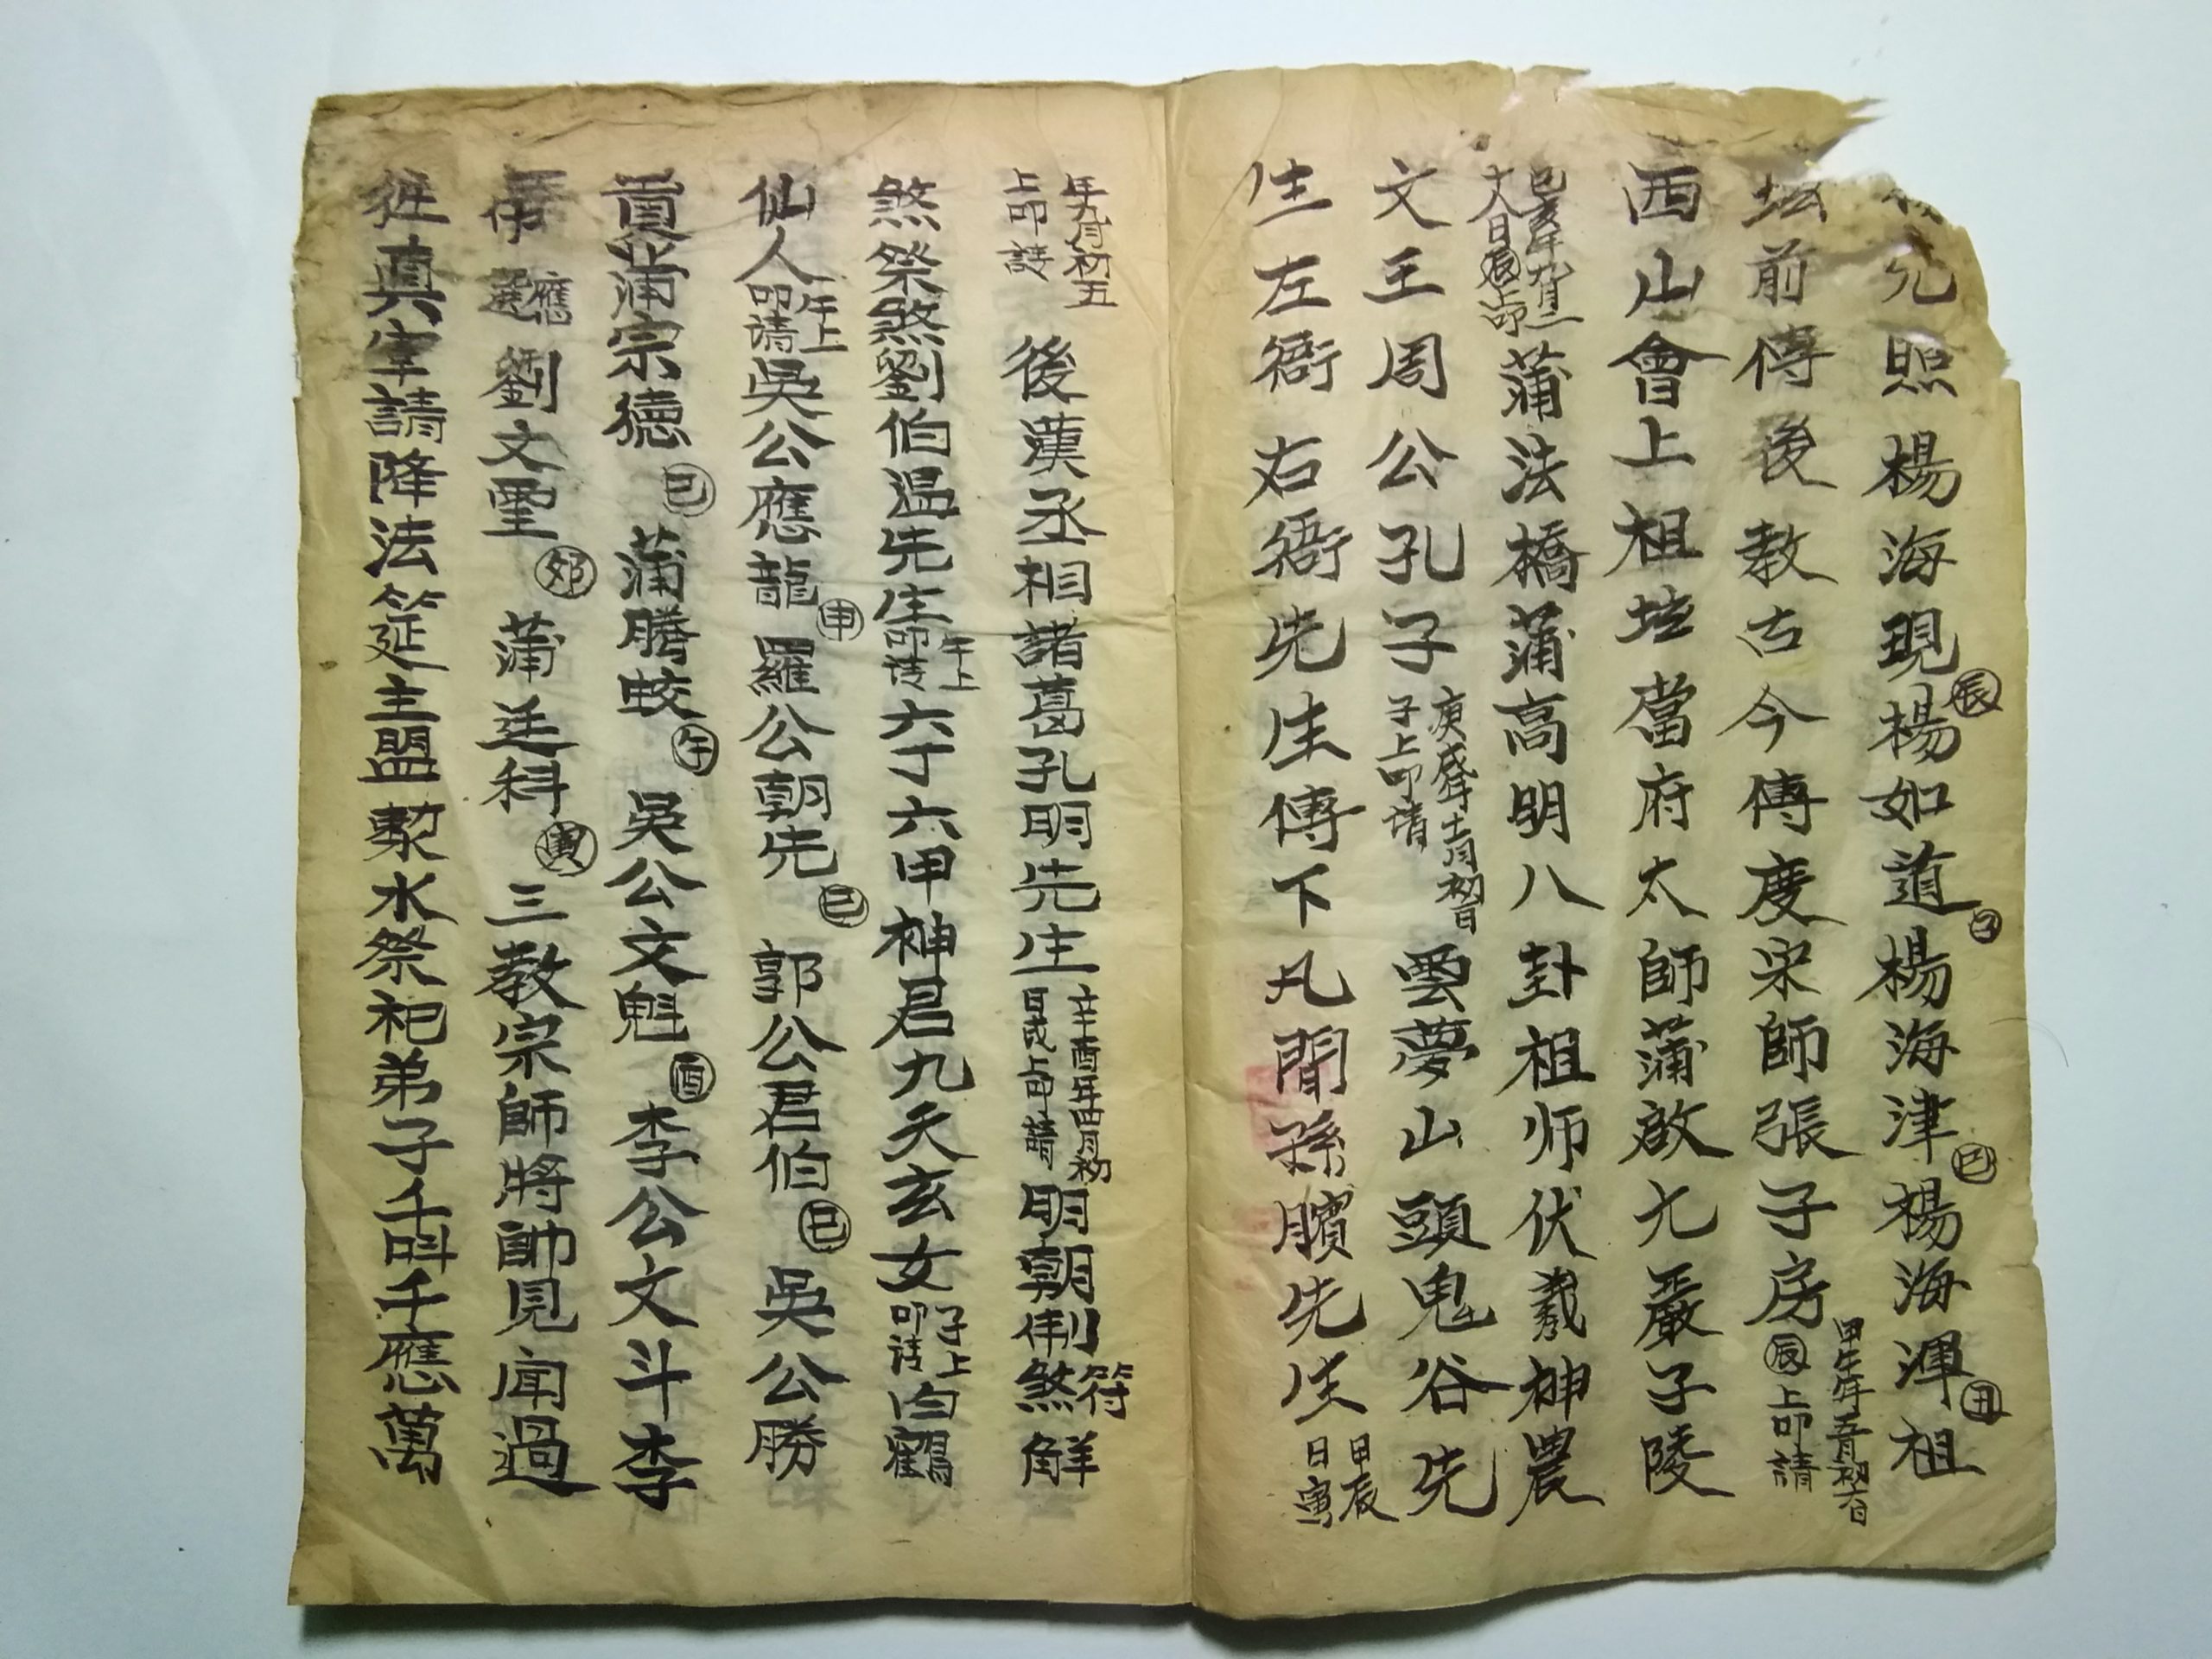 元照楊海現㊀辰楊如道子楊海津巳楊海渾丑祖
坛前傳後教古今傳度宋師張子房辰上叩請甲午年五月初六日
西山會上祖坛當府太師蒲啟九嚴子陵
己亥年九月二十八日辰上叩蒲法橋蒲高明八卦祖师伏羲神農
文王周公孔子庚戌年十一月初一日子上叩請雲夢山頭鬼谷先
生左衙右衙先生傳下凡間孫臏先生甲辰日寅
年九月初五上叩請後漢丞相諸葛孔明先生辛酉年四月初日戌上叩請明朝制煞符解
煞祭煞劉伯温先生午上叩请六丁六甲神君九天玄女子上叩请白鶴
仙人午上叩请吳公應龍申羅公朝先巳郭公君伯巳吳公勝
貢蒲宗德巳蒲騰蛟午吳公文魁酉李公文斗李
應選劉文星卯蒲廷科寅三教宗師將帥見闻過
徃真宰請降法筵主盟勷水祭祀弟子千叫千應萬